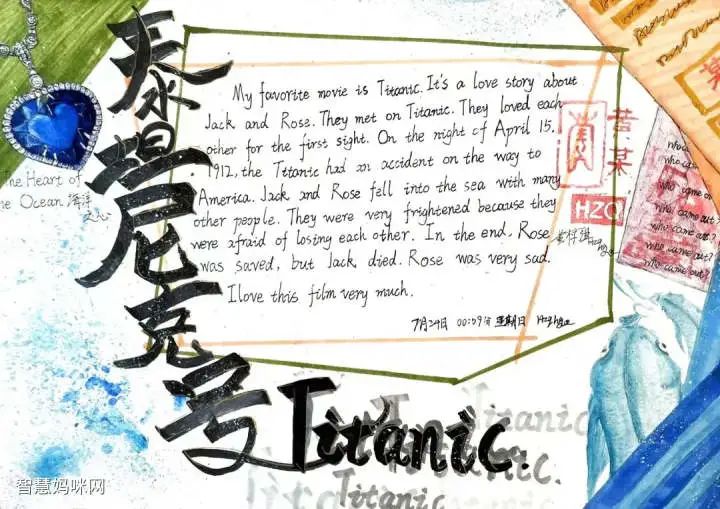 泰坦尼克号
My favorite movie is Titanic. It's a love story about
Jack and Rose. They met on Titanic. They loved each
other for the first sight. On the night of April 15.
1912, the Titanic had an accident on the way to
America. Jack and Rose fell into the sea with many
other people. They were very frightened because they
were afraid of losing each other. In the end, Rose
was saved, but Jack died. Rose was very sad.
I love this film very much.
7月29日 00:59分 星期日
The Heart of
the Ocean 海洋
之心
黄某
HZQ
who came out?
who came out?
who came out?
who came out?
Titanic.
Titanic.
Titanic
智慧妈咪网